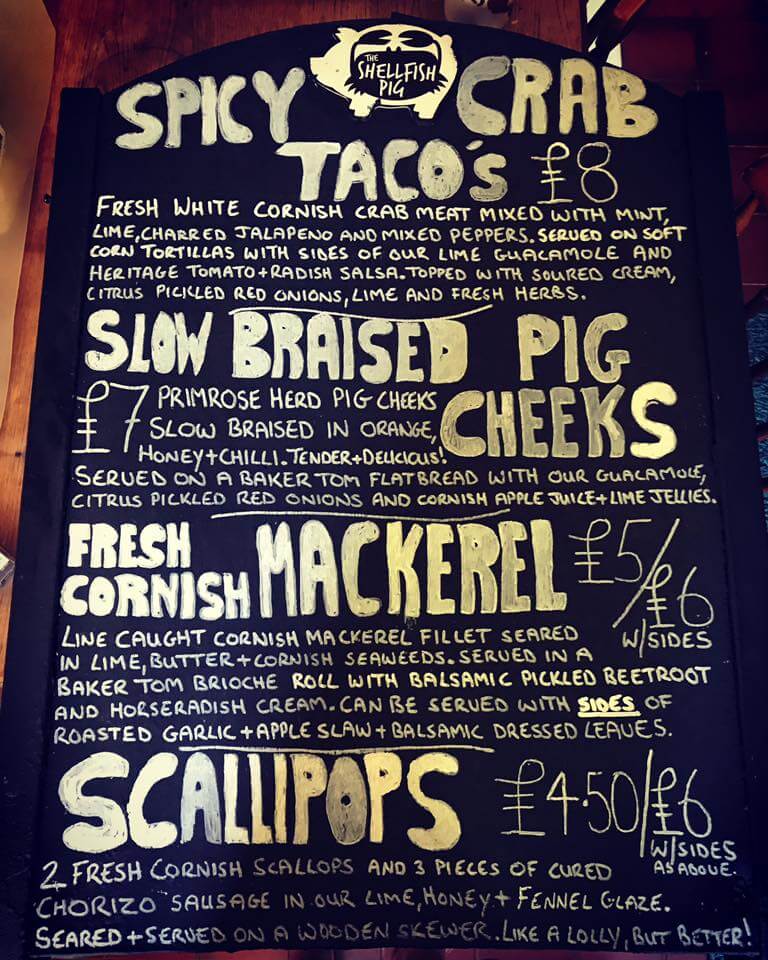 THE
SHELLFISH
PIG
SPICY CRAB
TACO'S £8
FRESH WHITE CORNISH CRAB MEAT MIXED WITH MINT,
LIME, CHARRED JALAPENO AND MIXED PEPPERS. SERVED ON SOFT
CORN TORTILLAS WITH SIDES OF OUR LIME GUACAMOLE AND
HERITAGE TOMATO + RADISH SALSA. TOPPED WITH SOURED CREAM,
CITRUS PICKLED RED ONIONS, LIME AND FRESH HERBS.
SLOW BRAISED PIG
CHEEKS
£7 PRIMROSE HERD PIG CHEEKS
SLOW BRAISED IN ORANGE,
HONEY + CHILLI. TENDER + DELICIOUS!
SERVED ON A BAKER TOM FLATBREAD WITH OUR GUACAMOLE,
CITRUS PICKLED RED ONIONS AND CORNISH APPLE JUICE + LIME JELLIES.
FRESH
CORNISH MACKEREL £5/£6
W/SIDES
LINE CAUGHT CORNISH MACKEREL FILLET SEARED
IN LIME, BUTTER + CORNISH SEAWEEDS. SERVED IN A
BAKER TOM BRIOCHE ROLL WITH BALSAMIC PICKLED BEETROOT
AND HORSERADISH CREAM. CAN BE SERVED WITH SIDES OF
ROASTED GARLIC + APPLE SLAW + BALSAMIC DRESSED LEAVES.
SCALLIPOPS £4.50/£6
W/SIDES
AS ABOVE.
2 FRESH CORNISH SCALLOPS AND 3 PIECES OF CURED
CHORIZO SAUSAGE IN OUR LIME, HONEY + FENNEL GLAZE.
SEARED + SERVED ON A WOODEN SKEWER. LIKE A LOLLY, BUT BETTER!